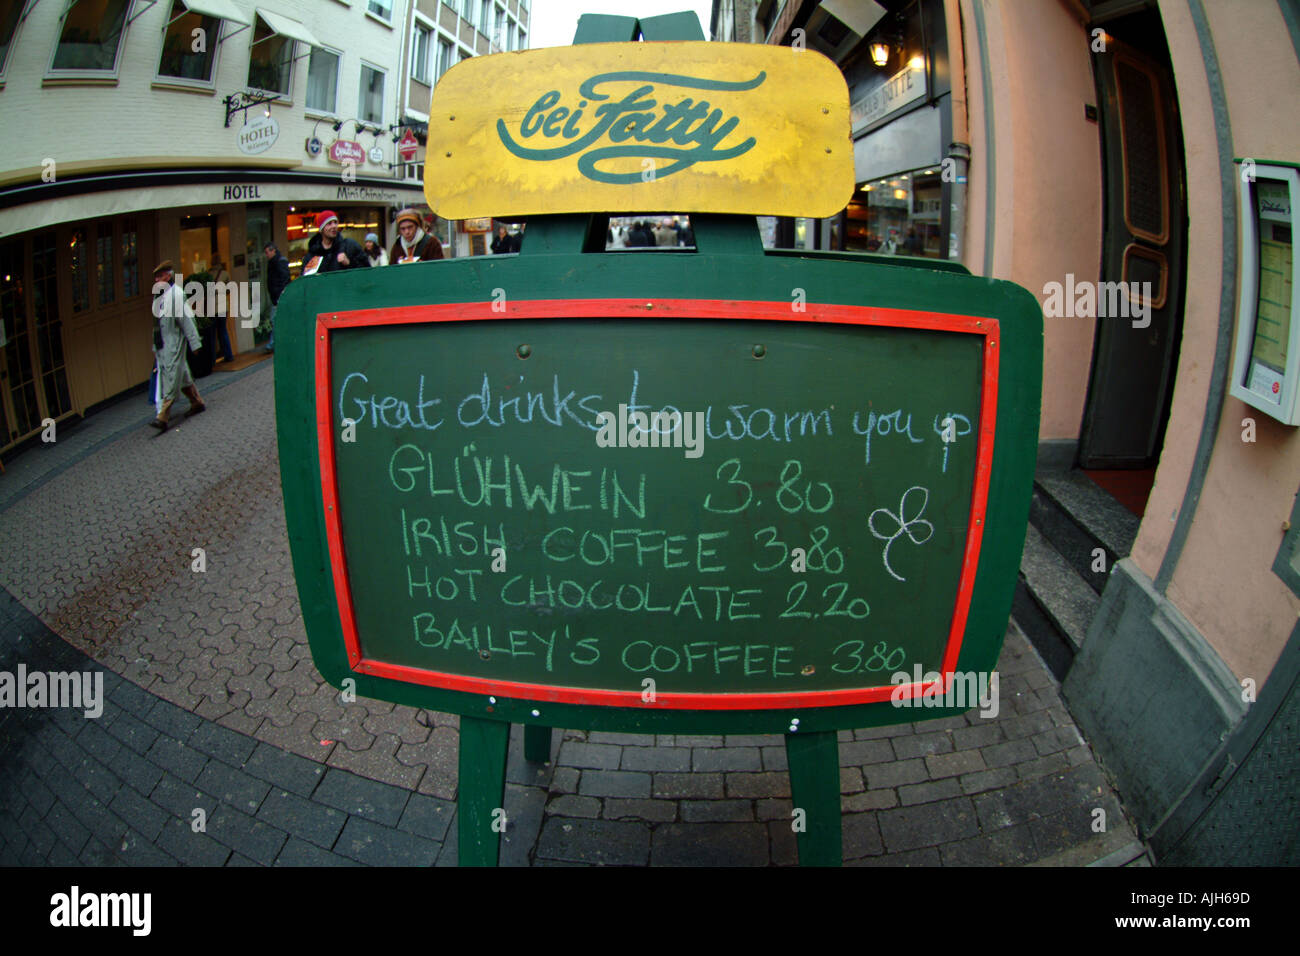 bei Fatty
HOTEL
HOTEL
Mini Chinatown
Great drinks to warm you up
GLÜHWEIN 3.80
IRISH COFFEE 3.80
HOT CHOCOLATE 2.20
BAILEY'S COFFEE 3.80
alamy
alamy
Image ID: AJH69D
www.alamy.com